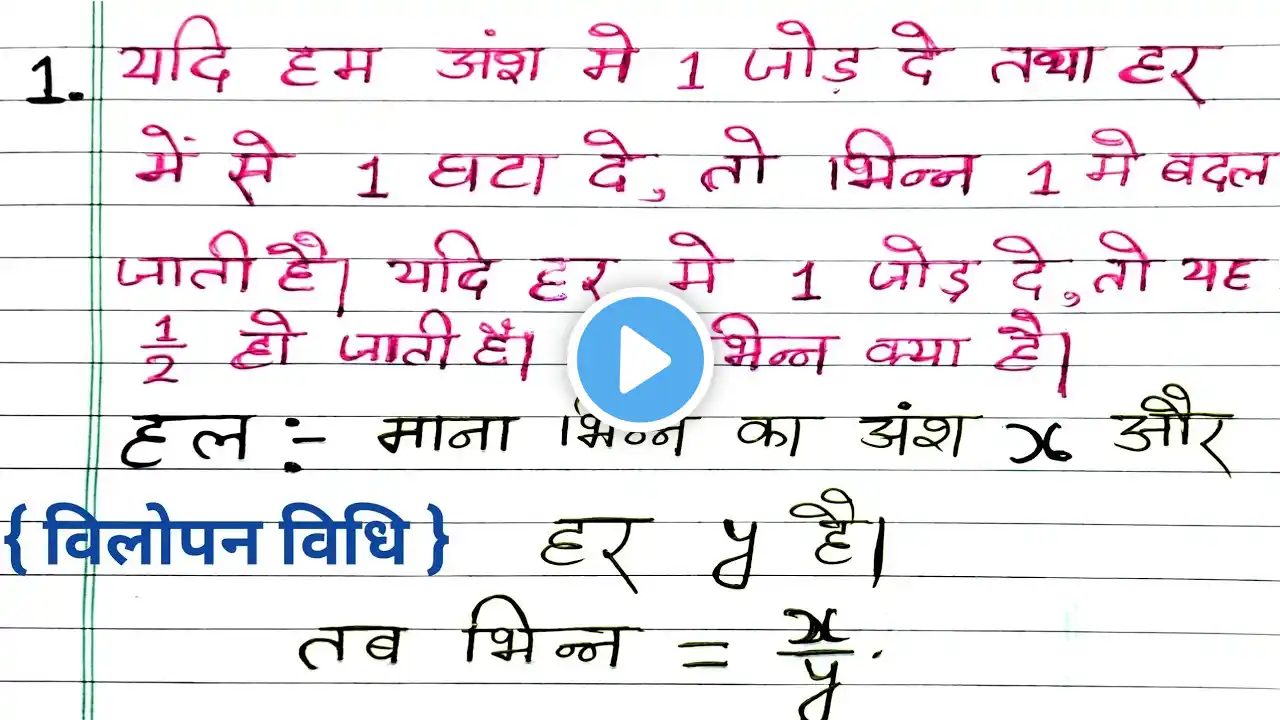 1. यदि हम अंश मे 1 जोड़ दे तथा हर
में से 1 घटा दे, तो भिन्न 1 मे बदल
जाती है। यदि हर मे 1 जोड़ दे, तो यह
1/2 हो जाती है। भिन्न क्या है।
हल :- माना भिन्न का अंश x और
{ विलोपन विधि } हर y है।
तब भिन्न = x/y.